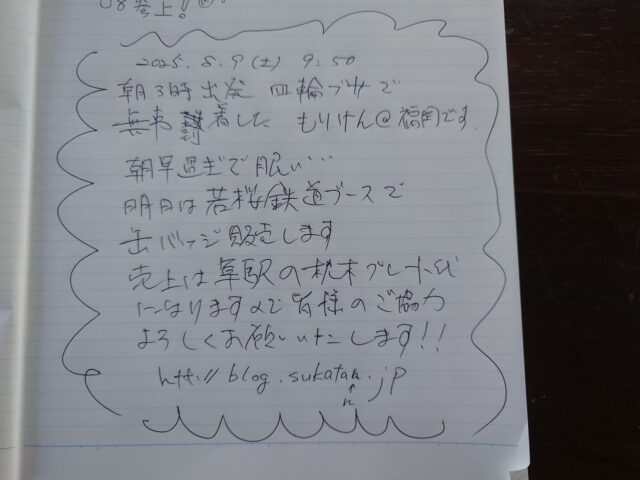 08参上!!
2025.8.9(土) 9:50
朝3時出発 四輪ブサで
無事 到着した もりけん@福岡です
朝早過ぎて眠い…
明日は若桜鉄道ブースで
缶バッジ販売します
売上は隼駅の枕木プレート代
になりますので皆様のご協力
よろしくお願いいたします!!
http://blog.sukatan.jp
↑
n